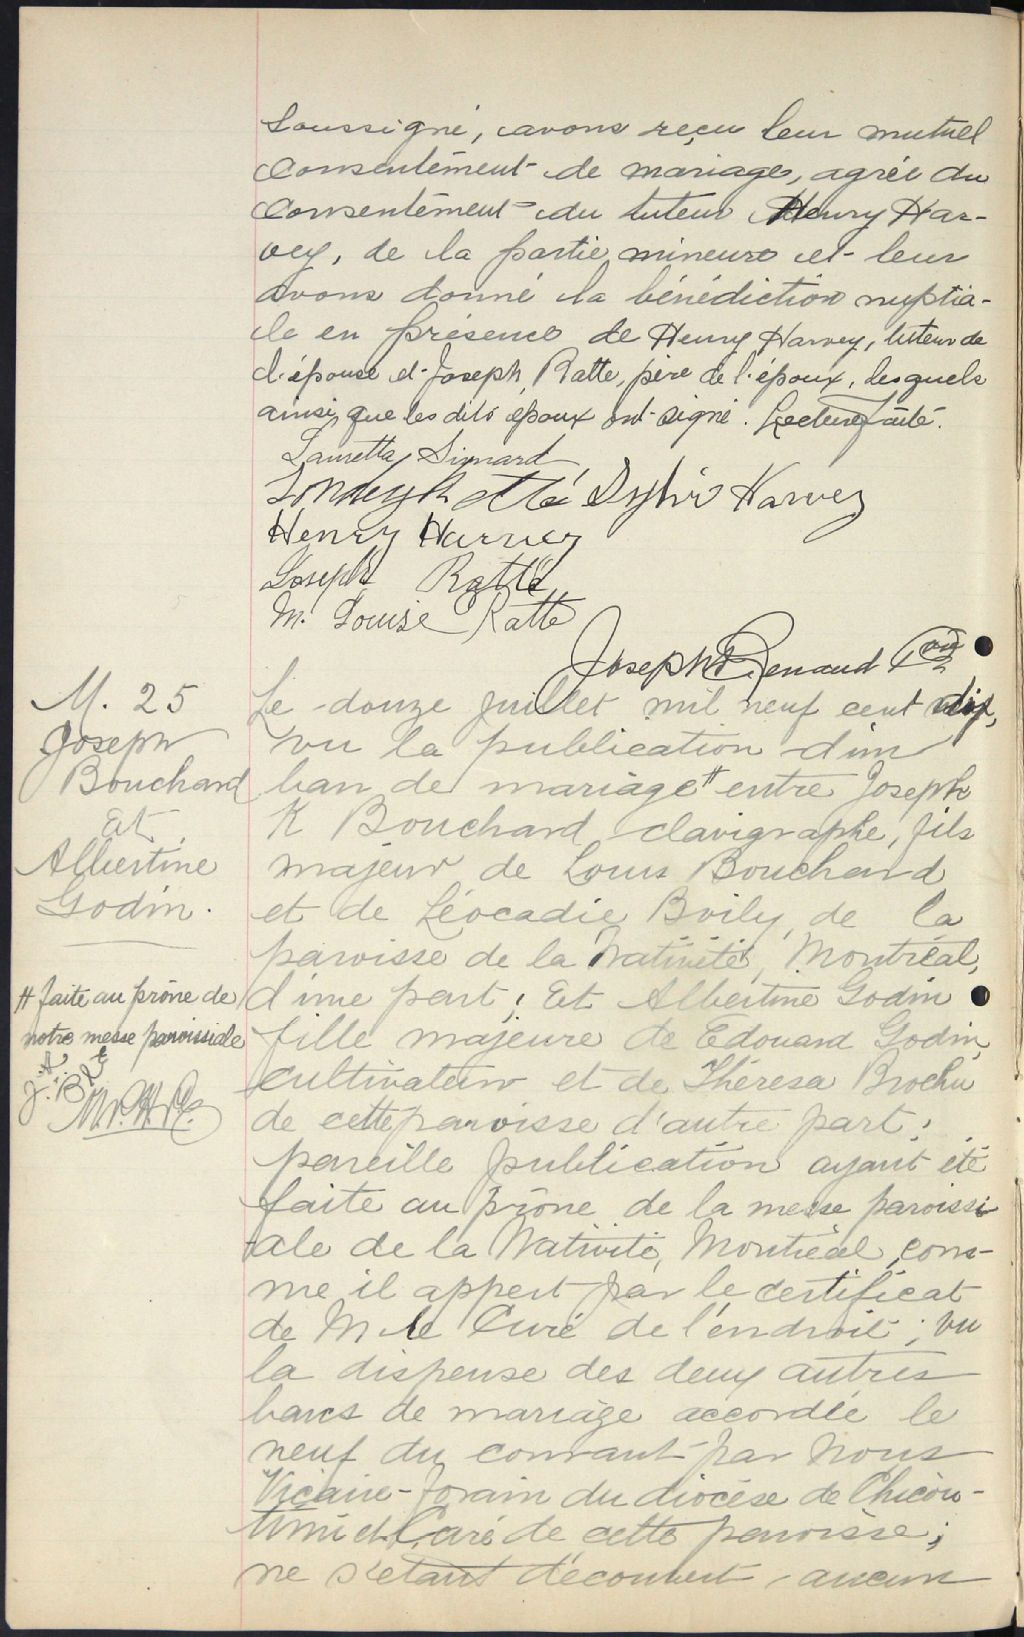 Soussigné, avons reçu leur mutuel
Consentement de mariage, agréé du
Consentement du tuteur Henry Har-
vey, de la partie mineure et leur
avons donné la bénédiction nuptia-
le en présence de Henry Harvey, tuteur de
l'épouse et Joseph Ratte, père de l'époux, lesquels
ainsi que les dits époux ont signé. Lecture faite.
Lauretta Simard
Ratté Sylvio Harvey
Henry Harvey
Joseph Ratté
M. Louise Ratte
Joseph Renaud
M. 25
Joseph
Bouchard
Et
Albertine
Godin.
Le douze juillet mil neuf cent dix,
vu la publication d'un
ban de mariage # entre Joseph
K Bouchard, clavigraphe, fils
majeur de Louis Bouchard
et de Léocadie Boily, de la
paroisse de la Nativité, Montréal,
d'une part; Et Albertine Godin
fille majeure de Edouard Godin,
cultivateur et de Thérèsa Brochu
de cette paroisse d'autre part;
pareille publication ayant été
faite au prône de la messe paroissi
ale de la Nativité, Montréal, com-
me il appert par le certificat
de M le Curé de l'endroit; vu
la dispense des deux autres
bans de mariage accordée le
neuf du courant par Nous
Vicaire-Forain du diocèse de Chicou-
timi et Curé de cette paroisse;
ne s'étant découvert aucun
# faite au prône de
notre messe paroissiale